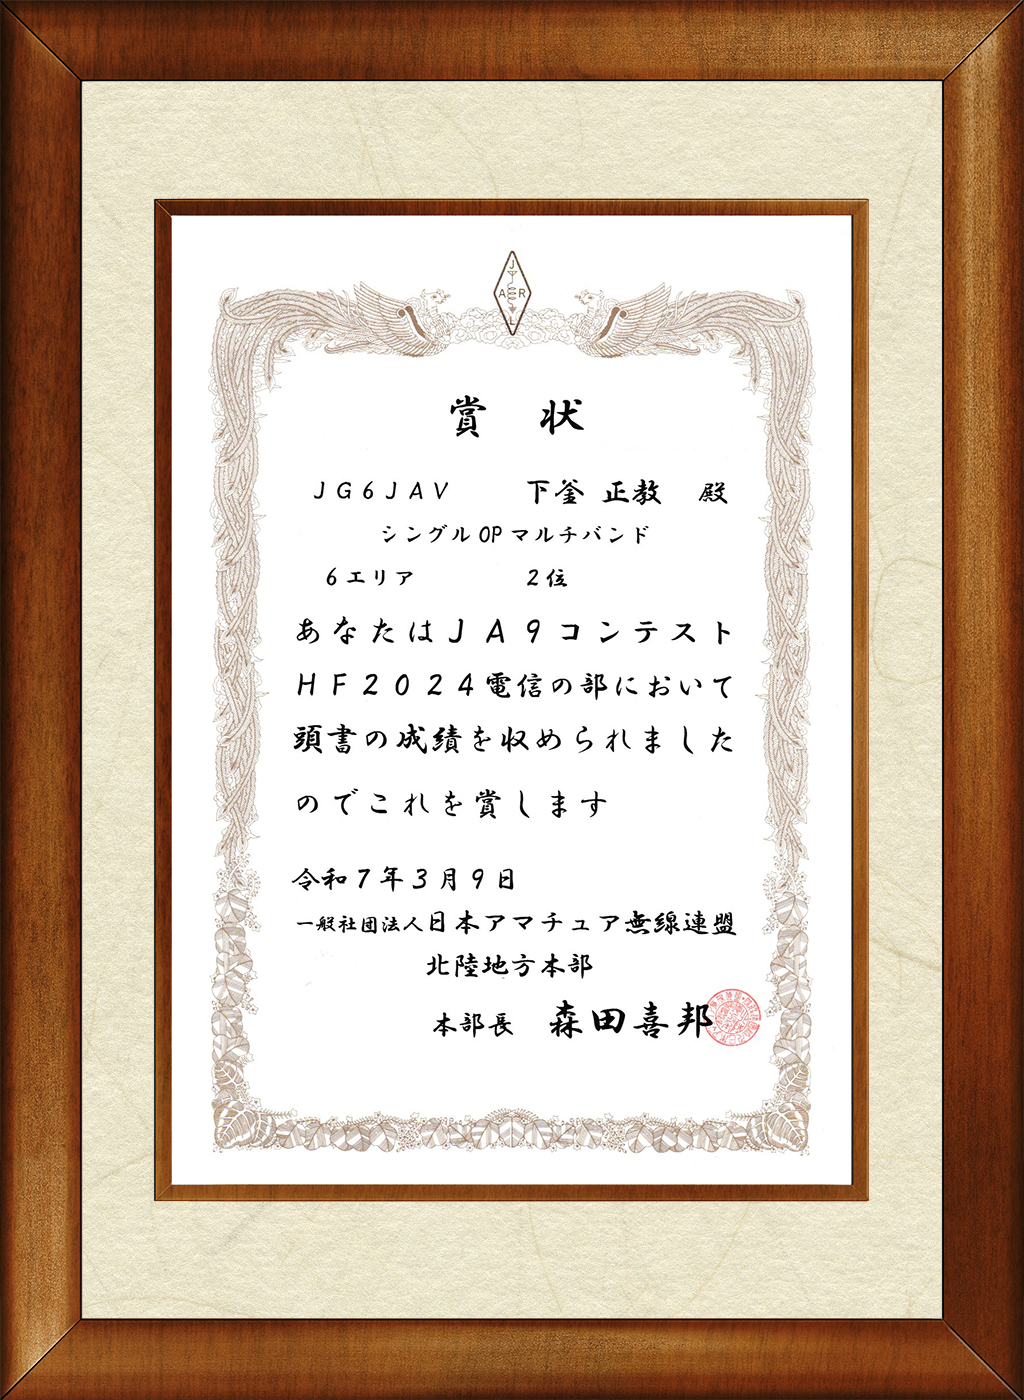 JARL
賞 状
JG6JAV 下釜 正教 殿
シングルOPマルチバンド
6エリア 2位
あなたはJA9コンテスト
HF2024電信の部において
頭書の成績を収められました
のでこれを賞します
令和7年3月9日
一般社団法人日本アマチュア無線連盟
北陸地方本部
本部長 森田喜邦